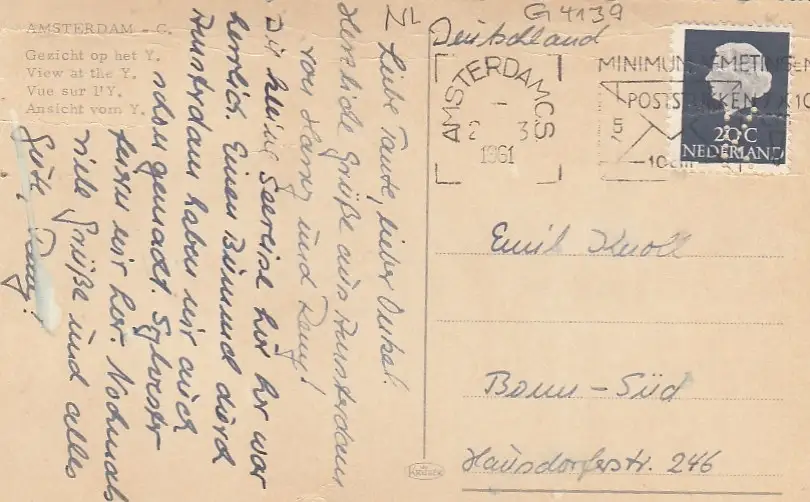 AMSTERDAM - C.
Gezicht op het Y.
View at the Y.
Vue sur l'Y.
Ansicht vom Y.
NL
Liebe Tante, lieber Onkel.
Herzliche Grüße aus Amsterdam
von Harry und
Die kleine Seereise hier her war
herrlich. Einen Bummel durch
Amsterdam haben wir auch
schon gemacht. Sylvester
feiern wir hier. Nochmals
viele Grüße und alles
Gute,
G 4139
Deutschland
AMSTERDAM CS
2 - 3
1961
MINIMUM AFMETINGEN
POSTSTUKKEN 7 X 10
20 C
NEDERLAND
Emil Knoll
Bonn-Süd
Hausdorferstr. 246